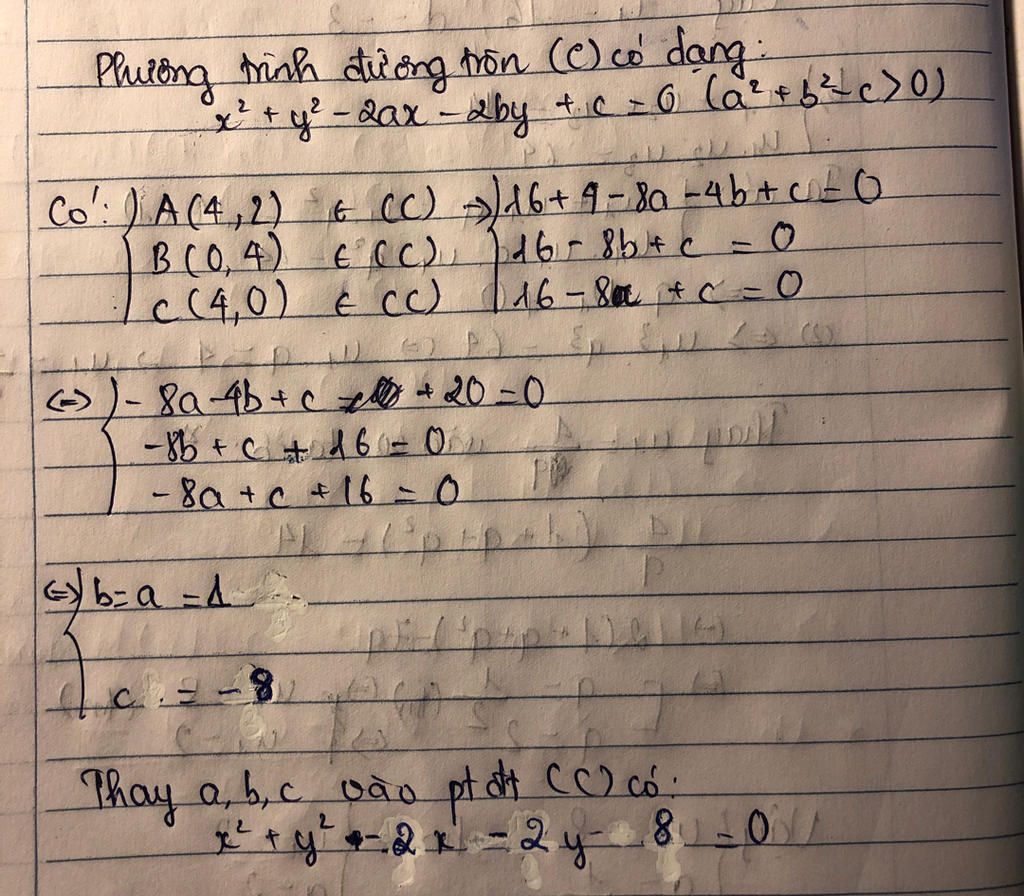 Phương trình đường tròn (C) có dạng:
x² + y² - 2ax - 2by + c = 0 (a² + b² - c > 0)
Có: { A(4,2) ∈ (C) => { 16 + 4 - 8a - 4b + c = 0
B(0,4) ∈ (C) 16 - 8b + c = 0
C(4,0) ∈ (C) 16 - 8a + c = 0
<=> { - 8a - 4b + c + 20 = 0
-8b + c + 16 = 0
-8a + c + 16 = 0
<=> { b = a = 1
c = -8
Thay a, b, c vào pt đt (C) có:
x² + y² - 2x - 2y - 8 = 0